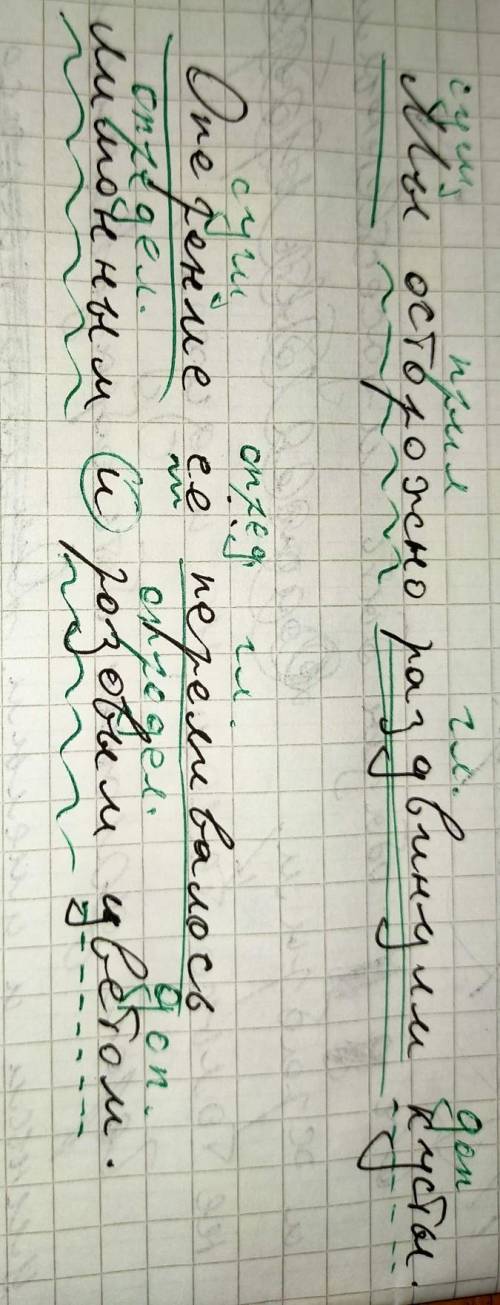 сущ прил гл. доп
Мы осторожно раздвинули кусты.
сущ опред. гл.
Оперение её переливалось
определ. определ. доп.
лимонным и розовым цветом.